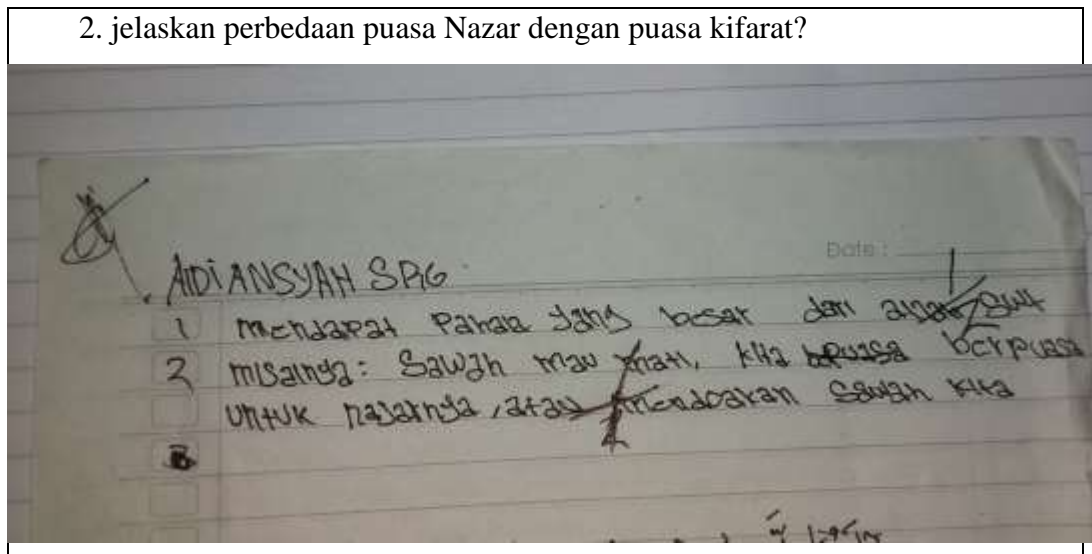 2. jelaskan perbedaan puasa Nazar dengan puasa kifarat?
Date :
AIDIANSYAH SRG
1 mendapat Pahala yang besar dari
2 misalnya: Sawah mau mati, kita berpuasa
untuk najarnya, atau mendoakan sawah kita